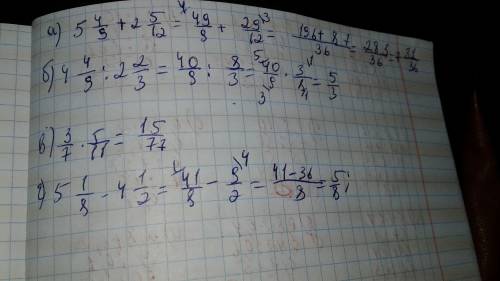 а) 5 4/9 + 2 5/12 = 49/9 ⁴ + 29/12 ³ = 196+87/36 = 283/36 = 7 31/36
б) 4 4/9 : 2 2/3 = 40/9 : 8/3 = 40/9 · 3/8 = 5/3
в) 3/7 · 5/11 = 15/77
г) 5 1/8 - 4 1/2 = 41/8 ¹ - 9/2 ⁴ = 41-36/8 = 5/8;